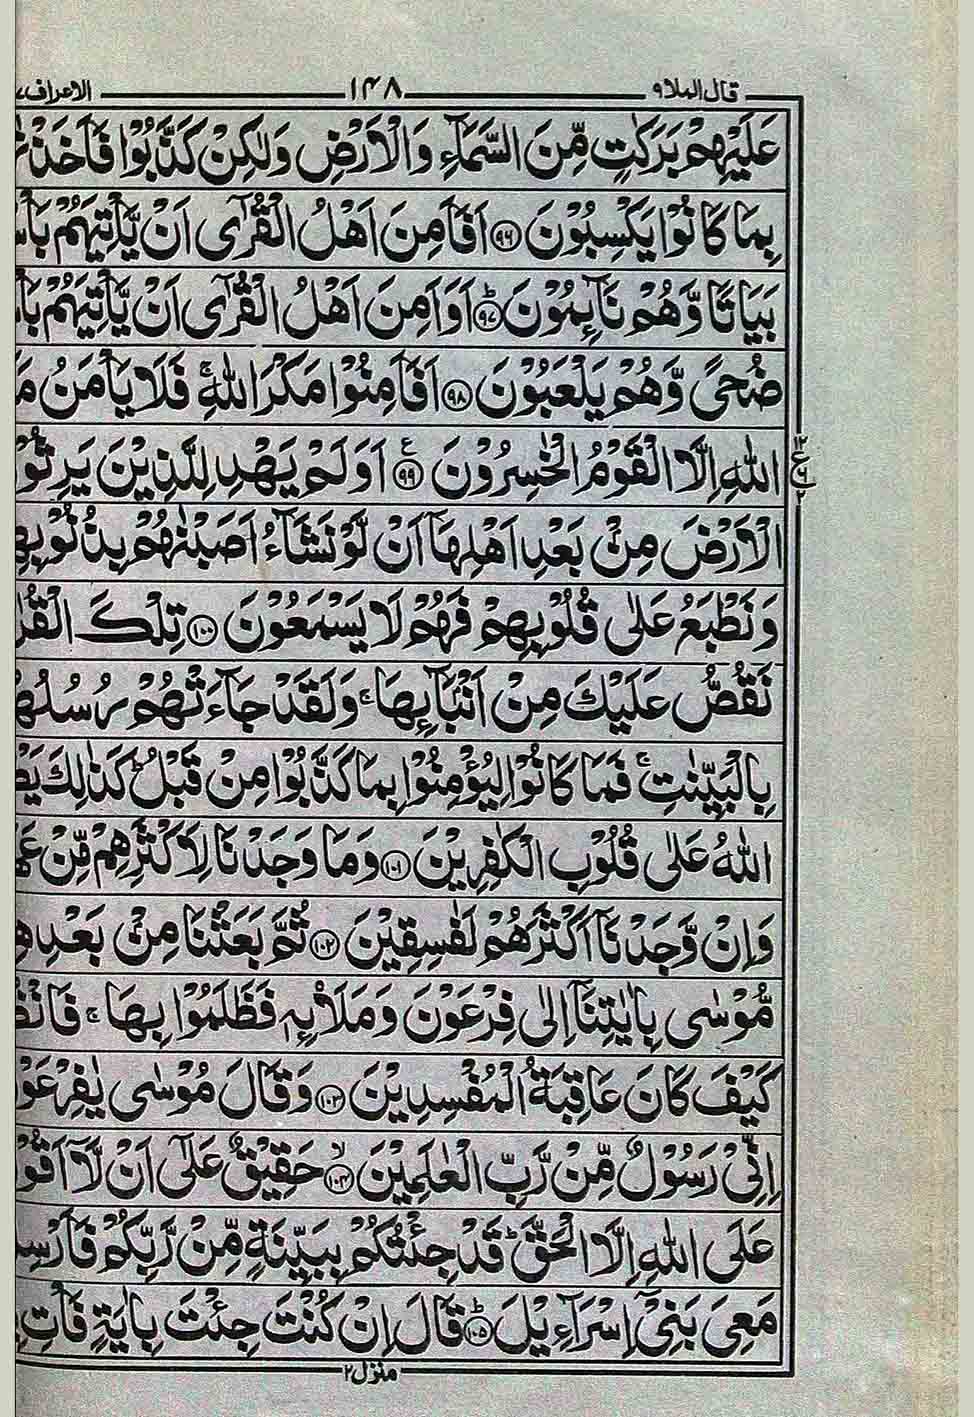 قال الملا ٩ ١٤٨ الاعراف ٧
عَلَيْهِمْ بَرَكٰتٍ مِّنَ السَّمَآءِ وَالْاَرْضِ وَلٰكِنْ كَذَّبُوْا
بِمَا كَانُوْا يَكْسِبُوْنَ ﴿٩٦﴾ اَفَاَمِنَ اَهْلُ الْقُرٰٓى اَنْ يَّاْتِيَهُمْ
بَيَاتًا وَّهُمْ نَآئِمُوْنَ ؕ﴿٩٧﴾ اَوَاَمِنَ اَهْلُ الْقُرٰٓى اَنْ يَّاْتِيَهُمْ
ضُحًى وَّهُمْ يَلْعَبُوْنَ ﴿٩٨﴾ اَفَاَمِنُوْا مَكْرَ اللّٰهِ ۚ فَلَا يَاْمَنُ
اللّٰهِ اِلَّا الْقَوْمُ الْخٰسِرُوْنَ ﴿٩٩﴾ ع اَوَلَمْ يَهْدِ لِلَّذِيْنَ
١٢ ع ٦ ٢
الْاَرْضَ مِنْۢ بَعْدِ اَهْلِهَاۤ اَنْ لَّوْ نَشَآءُ اَصَبْنٰهُمْ
وَنَطْبَعُ عَلٰى قُلُوْبِهِمْ فَهُمْ لَا يَسْمَعُوْنَ ﴿١٠٠﴾ تِلْكَ
نَقُصُّ عَلَيْكَ مِنْ اَنْۢبَآئِهَا ۚ وَلَقَدْ جَآءَتْهُمْ
بِالْبَيِّنٰتِ ۚ فَمَا كَانُوْا لِيُؤْمِنُوْا بِمَا كَذَّبُوْا مِنْ قَبْلُ ؕ كَذٰلِكَ
اللّٰهُ عَلٰى قُلُوْبِ الْكٰفِرِيْنَ ﴿١٠١﴾ وَمَا وَجَدْنَا لِاَكْثَرِهِمْ مِّنْ
وَاِنْ وَّجَدْنَاۤ اَكْثَرَهُمْ لَفٰسِقِيْنَ ﴿١٠٢﴾ ثُمَّ بَعَثْنَا مِنْۢ
مُّوْسٰى بِاٰيٰتِنَاۤ اِلٰى فِرْعَوْنَ وَمَلَا۟ئِهٖ فَظَلَمُوْا بِهَا ۚ
كَيْفَ كَانَ عَاقِبَةُ الْمُفْسِدِيْنَ ﴿١٠٣﴾ وَقَالَ مُوْسٰى
اِنِّىْ رَسُوْلٌ مِّنْ رَّبِّ الْعٰلَمِيْنَ ۙ﴿١٠٤﴾ حَقِيْقٌ عَلٰٓى اَنْ لَّاۤ
عَلَى اللّٰهِ اِلَّا الْحَقَّ ؕ قَدْ جِئْتُكُمْ بِبَيِّنَةٍ مِّنْ رَّبِّكُمْ
مَعِىَ بَنِىْۤ اِسْرَآءِيْلَ ؕ﴿١٠٥﴾ قَالَ اِنْ كُنْتَ جِئْتَ بِاٰيَةٍ فَاْتِ
منزل ٢